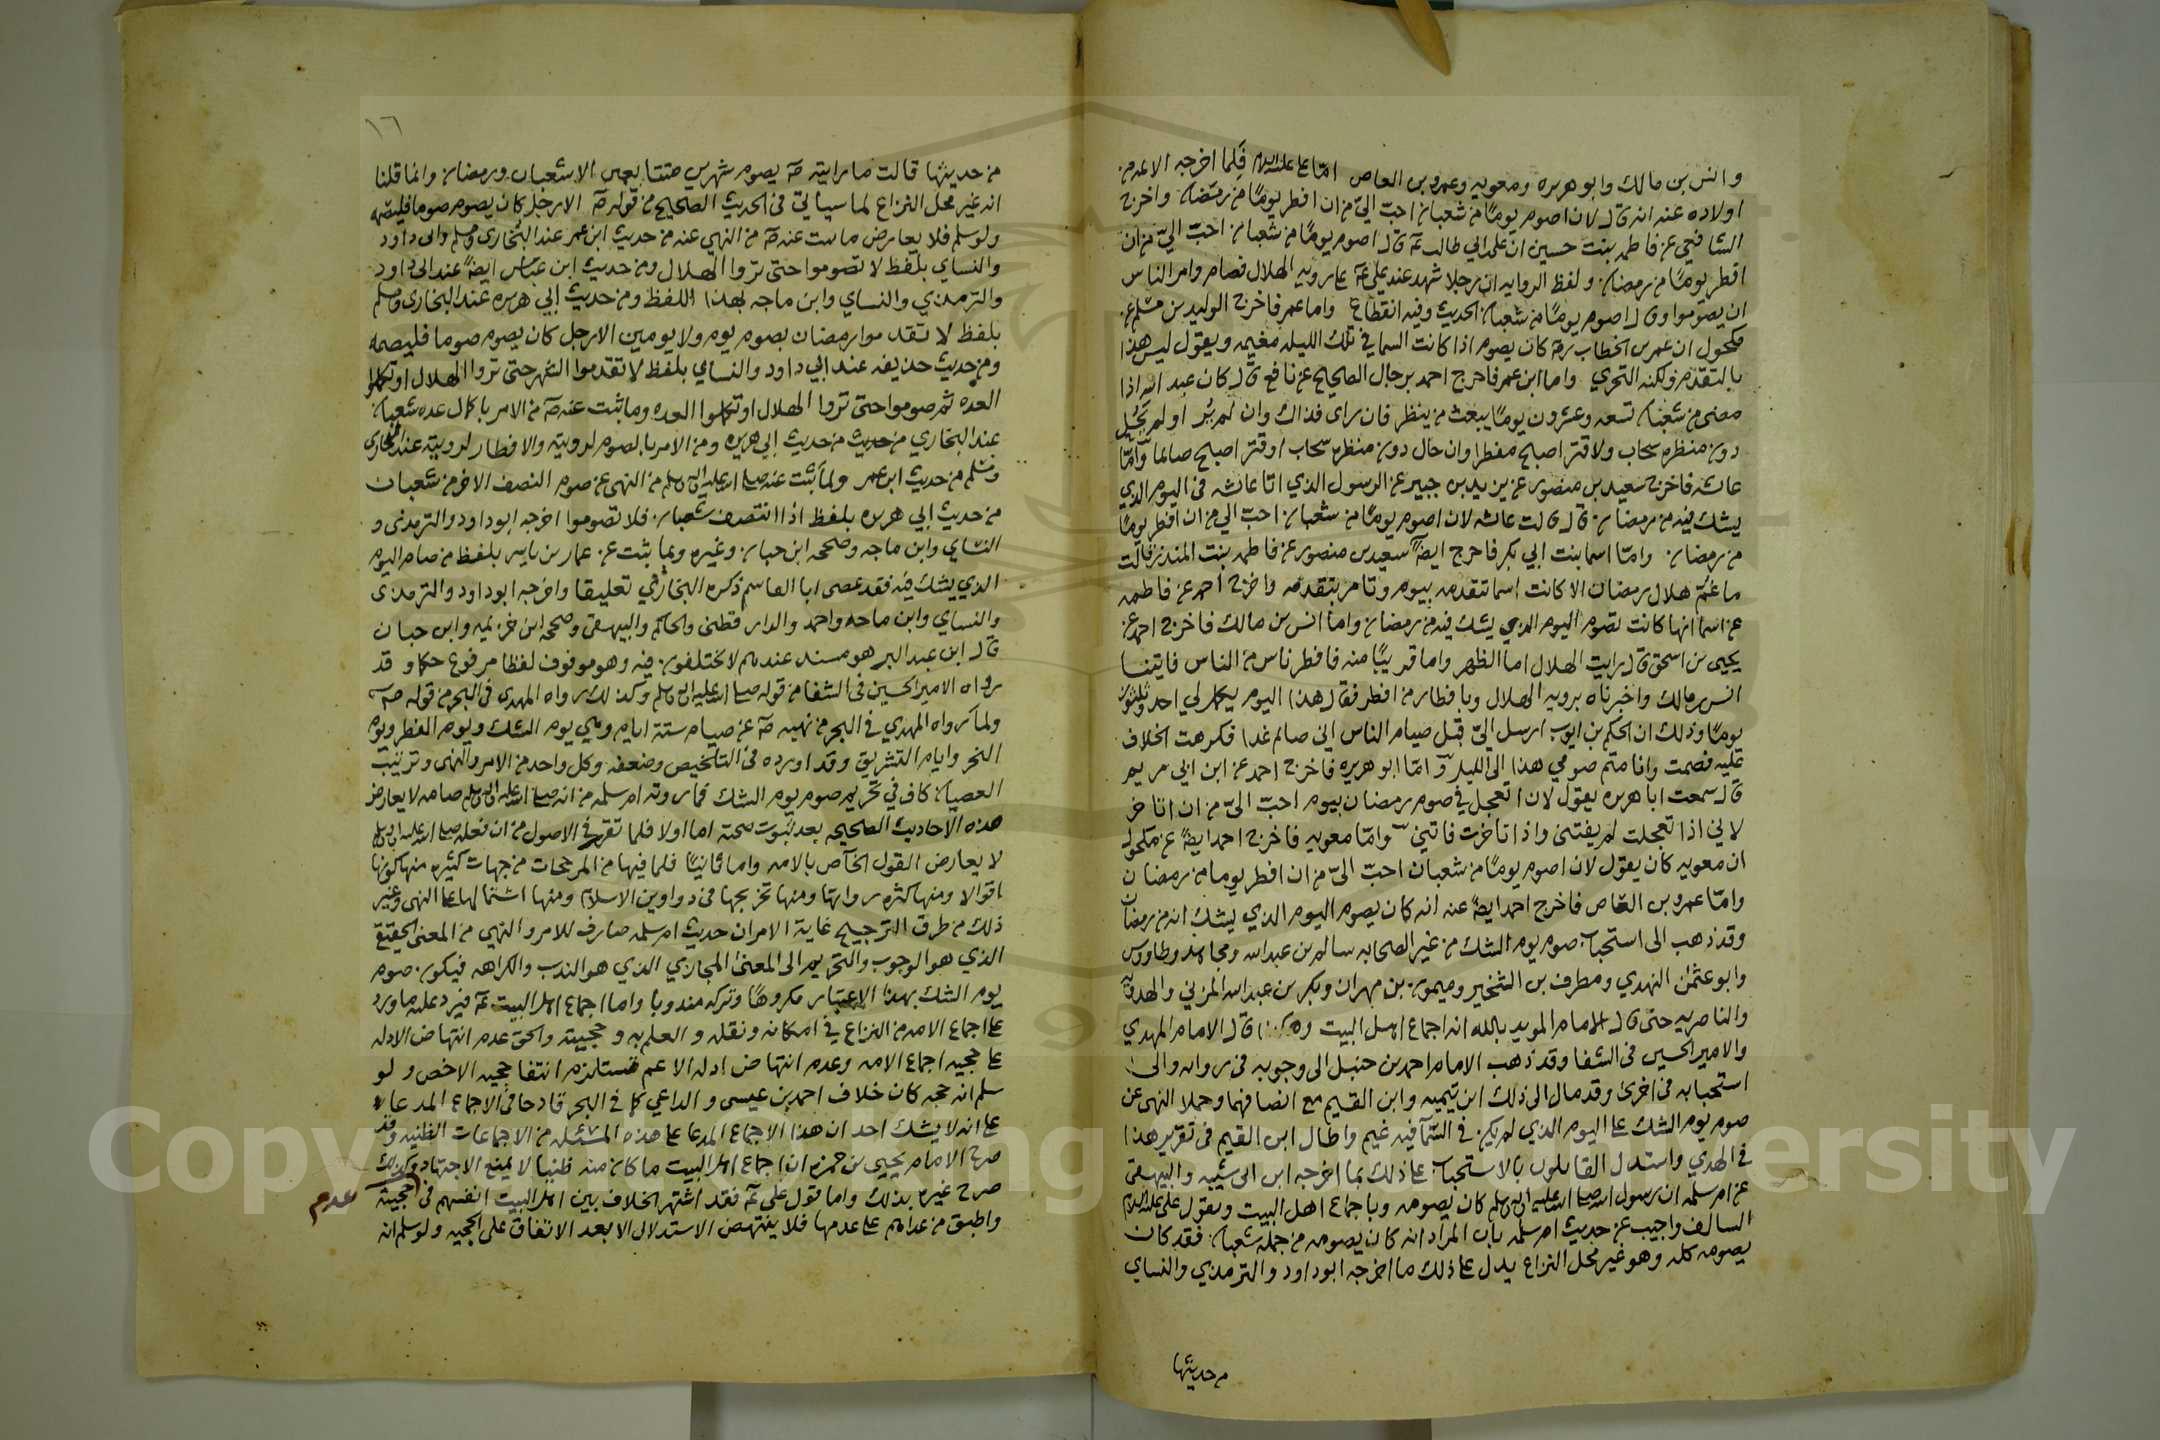 وانس بن مالك وابو هريره ومعويه وعمرو بن العاص اما علي عليه السلم فلما اخرجه الاعدمن
اولاده عنه انه قال لان اصوم يومًا من شعبان احبّ اليّ من ان افطر يومًا من رمضان واخرج
الشافعي عن فاطمه بنت حسين ان علي ابي طالب قال اصوم يومًا من شعبان احبّ اليّ من ان
افطر يومًا من رمضان ولفظ الروايه ان رجلا شهد عند علي عا رويه الهلال فصام وامر الناس
ان يصوموا وقال اصوم يومًا من شعبان الحديث وفيه انقطاع واما عمر فاخرج الوليد بن مسلم عن
مكحول ان عمر بن الخطاب كان يصوم اذا كانت السما في تلك الليله مغيمه ويقول ليس هذا
بالتقدم ولكنه التحري واما ابن عمر فاخرج احمد برجال الصحيح عن نافع قال كان عبد الله اذا
مضى من شعبان تسعه وعشرون يومًا يبعث من ينظر فان راى فذاك وان لم ير او لم يحُل
دون منظره سحاب ولا قتر اصبح مفطرا وان حال دون منظره سحاب او قتر اصبح صائما وامّا
عائشه فاخرج سعيد بن منصور عن يزيد بن جبير عن الرسول الذي اتا عائشه في اليوم الذي
يشك فيه من رمضان قال قالت عائشه لان اصوم يومًا من شعبان احبّ الي من ان افطر يومًا
من رمضان وامّا اسما بنت ابي بكر فاخرج ايضًا سعيد بن منصور عن فاطمه بنت المنذر قالت
ما غمّ هلال رمضان الا كانت اسما تتقدمه بيوم وتامر بتقدمه واخرج احمد عن فاطمه
عن اسما انها كانت تصوم اليوم الذي يشك فيه من رمضان واما انس بن مالك فاخرج احمد عن
يحيى بن اسحق قال رايت الهلال اما الظهر واما قريبًا منه فافطر ناس من الناس فاتينا
انس بن مالك واخبرناه برويه الهلال وبافطار من افطر فقال هذا اليوم يكمل لي احد وثلثون
يومًا وذلك ان الحكم بن ايوب ارسل اليّ قبل صيام الناس اني صائم غدا فكرهت الخلاف
عليه فصمت وانا متم صومي هذا الى الليل وامّا ابو هريره فاخرج احمد عن ابن ابي مريم
قال سمعت ابا هريره يقول لان اتعجل في صوم رمضان بيوم احبّ اليّ من ان اتاخر
لاني اذا تعجلت لم يفتني واذا تاخرت فاتني وامّا معويه فاخرج احمد ايضًا عن مكحول
ان معويه كان يقول لان اصوم يومًا من شعبان احبّ اليّ من ان افطر يوما من رمضان
وامّا عمرو بن العاص فاخرج احمد ايضًا عنه انه كان يصوم اليوم الذي يشك انه من رمضان
وقد ذهب الى استحباب صوم يوم الشك من غير الصحابه سالم بن عبد الله ومجاهد وطاووس
وابو عثمن النهدي ومطرف بن الشخير وميمون بن مهران وبكر بن عبد الله المزني والهدويه
والناصريه حتى قال الامام المويد بالله انه اجماع اهل البيت وهكذا قال الامام المهدي
والامير الحسين في الشفا وقد ذهب الامام احمد بن حنبل الى وجوبه في روايه والى
استحبابه في اخرى وقد مال الى ذلك ابن تيميه وابن القيم مع انصافهما وحملا النهى عن
صوم يوم الشك عا اليوم الذي لم يكن في السّما فيه غيم واطال ابن القيم في تقرير هذا
في الهدي واستدل القايلون بالاستحباب عا ذلك بما اخرجه ابن ابي شيبه والبيهقي
عن ام سلمه ان رسول الله صلى الله عليه واله وسلم كان يصومه وباجماع اهل البيت وبقول علي عليه السلام
السالف واجيب عن حديث ام سلمه بان المراد انه كان يصومه من جملة شعبان فقد كان
يصومه كله وهو غير محل النزاع يدل عا ذلك ما اخرجه ابو داود والترمذي والنساي
من حديثها
١٦
من حديثها قالت ما رايته يصوم شهرين متتابعين الا شعبان ورمضان وانما قلنا
انه غير محل النزاع لما سياتي في الحديث الصحيح من قوله الا رجل كان يصوم صوما فليصمه
ولو سلم فلا يعارض ما ثبت عنه من النهي عنه من حديث ابن عمر عند البخاري ومسلم وابي داود
والنساي بلفظ لا تصوموا حتى تروا الهلال ومن حديث ابن عباس ايضًا عند ابي داود
والترمذي والنساي وابن ماجه بهذا اللفظ ومن حديث ابي هريره عند البخاري ومسلم
بلفظ لا تقدموا رمضان بصوم يوم ولا يومين الا رجل كان يصوم صوما فليصمه
ومن حديث حذيفه عند ابي داود والنساي بلفظ لا تقدموا الشهر حتى تروا الهلال او تكملوا
العده ثم صوموا حتى تروا الهلال او تكملوا العده وما ثبت عنه من الامر باكمال عده شعبان
عند البخاري من حديث من حديث ابي هريره ومن الامر بالصوم لرويته والافطار لرويته عند البخاري
ومسلم من حديث ابن عمر ولما ثبت عنه صلى الله عليه واله وسلم من النهى عن صوم النصف الاخر من شعبان
من حديث ابي هريره بلفظ اذا انتصف شعبان فلا تصوموا اخرجه ابو داود والترمذى و
النساي وابن ماجه وصححه ابن حبان وغيره وبما ثبت عن عمار بن ياسر بلفظ من صام اليوم
الذي يشك فيه فقد عصى ابا القاسم ذكره البخاري تعليقا واخرجه ابو داود والترمذى
والنساي وابن ماجه واحمد والدار قطنى والحاكم والبيهقى وصححه ابن خزيمه وابن حبان
قال ابن عبد البر هو مسند عندهم لا يختلفون فيه وهو موقوف لفظا مرفوع حكما وقد
رواه الامير الحسين في الشفا من قوله صلى الله عليه واله وسلم وكذلك رواه المهدى في البحر من قوله
ولما رواه المهدي في البحر من نهيه عن صيام ستة ايام وهي يوم الشك ويوم الفطر ويوم
النحر وايام التشريق وقد اورده في التلخيص وضعفه وكل واحد من الامر والنهى وترتيب
العصيان كاف في تحريم صوم يوم الشك فما روته ام سلمه من انه صلى الله عليه واله وسلم صامه لا يعارض
هذه الاحاديث الصحيحه بعد ثبوت صحته اما اولا فلما تقرر في الاصول من ان فعله صلى الله عليه واله وسلم
لا يعارض القول الخاص بالامه واما ثانيًا فلما فيها من المرجحات من جهات كثيره منها كونها
اقوالا ومنها كثره رواتها ومنها تخريجها في دواوين الاسلام ومنها اشتمالها عا النهى وغير
ذلك من طرق الترجيح غاية الامر ان حديث ام سلمه صارف للامر والنهي من المعنى الحقيقي
الذي هو الوجوب والتحريم الى المعنى المجازي الذي هو الندب والكراهه فيكون صوم
يوم الشك بهذا الاعتبار مكروهًا وتركه مندوبا واما اجماع اهل البيت فيرد عليه ما ورد
عا اجماع الامه من النزاع في امكانه ونقله والعلم به وحجيته والحق عدم انتهاض الادله
عا حجيه اجماع الامه وعدم انتهاض ادله الاعم مستلزم انتفا حجيه الاخص ولو
سلم انه حجه كان خلاف احمد بن عيسى والداعي كما في البحر قادحا في الاجماع المدعا
عا انه لا يشك احد ان هذا الاجماع المدعا عا هذه المسئله من الاجماعات الظنيه وقد
صرح الامام يحيى بن حمزه ان اجماع اهل البيت ما كان منه ظنيا لا يمنع الاجتهاد وكذلك
صرح غيره بذلك واما قول علي فقد اشتهر الخلاف بين اهل البيت انفسهم في حجيته
عدم
واطبق من عداهم عا عدمها فلا ينتهض الاستدلال الا بعد الاتفاق على الحجيه ولو سلم انه
Copy King University